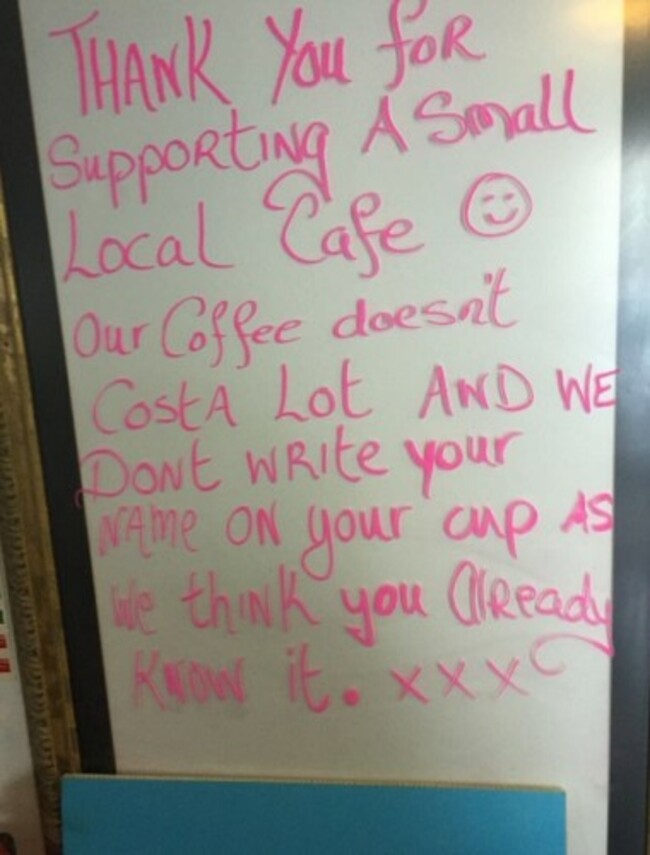 THANK You foR
SuppoRtING A Small
Local Cafe ☺
Our Coffee doesn't
CostA Lot AND WE
DoNt WRIte your
NAme ON your cup AS
We thINK you AlReady
KNow it. xxx